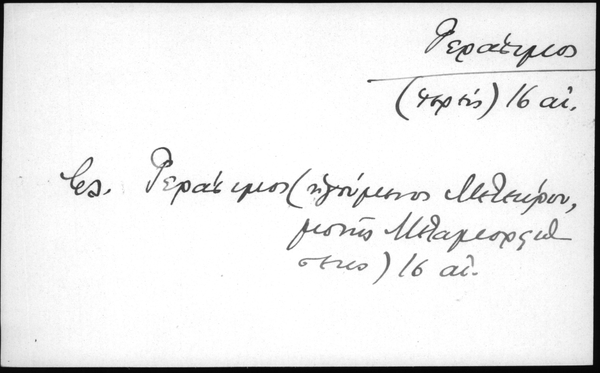 Γεράσιμος
(περ τις) 16 αἰ.
Βλ. Γεράσιμος (ἡγούμενος Μετεώρου,
μονῆς Μεταμορφώ
σεως) 16 αἰ.